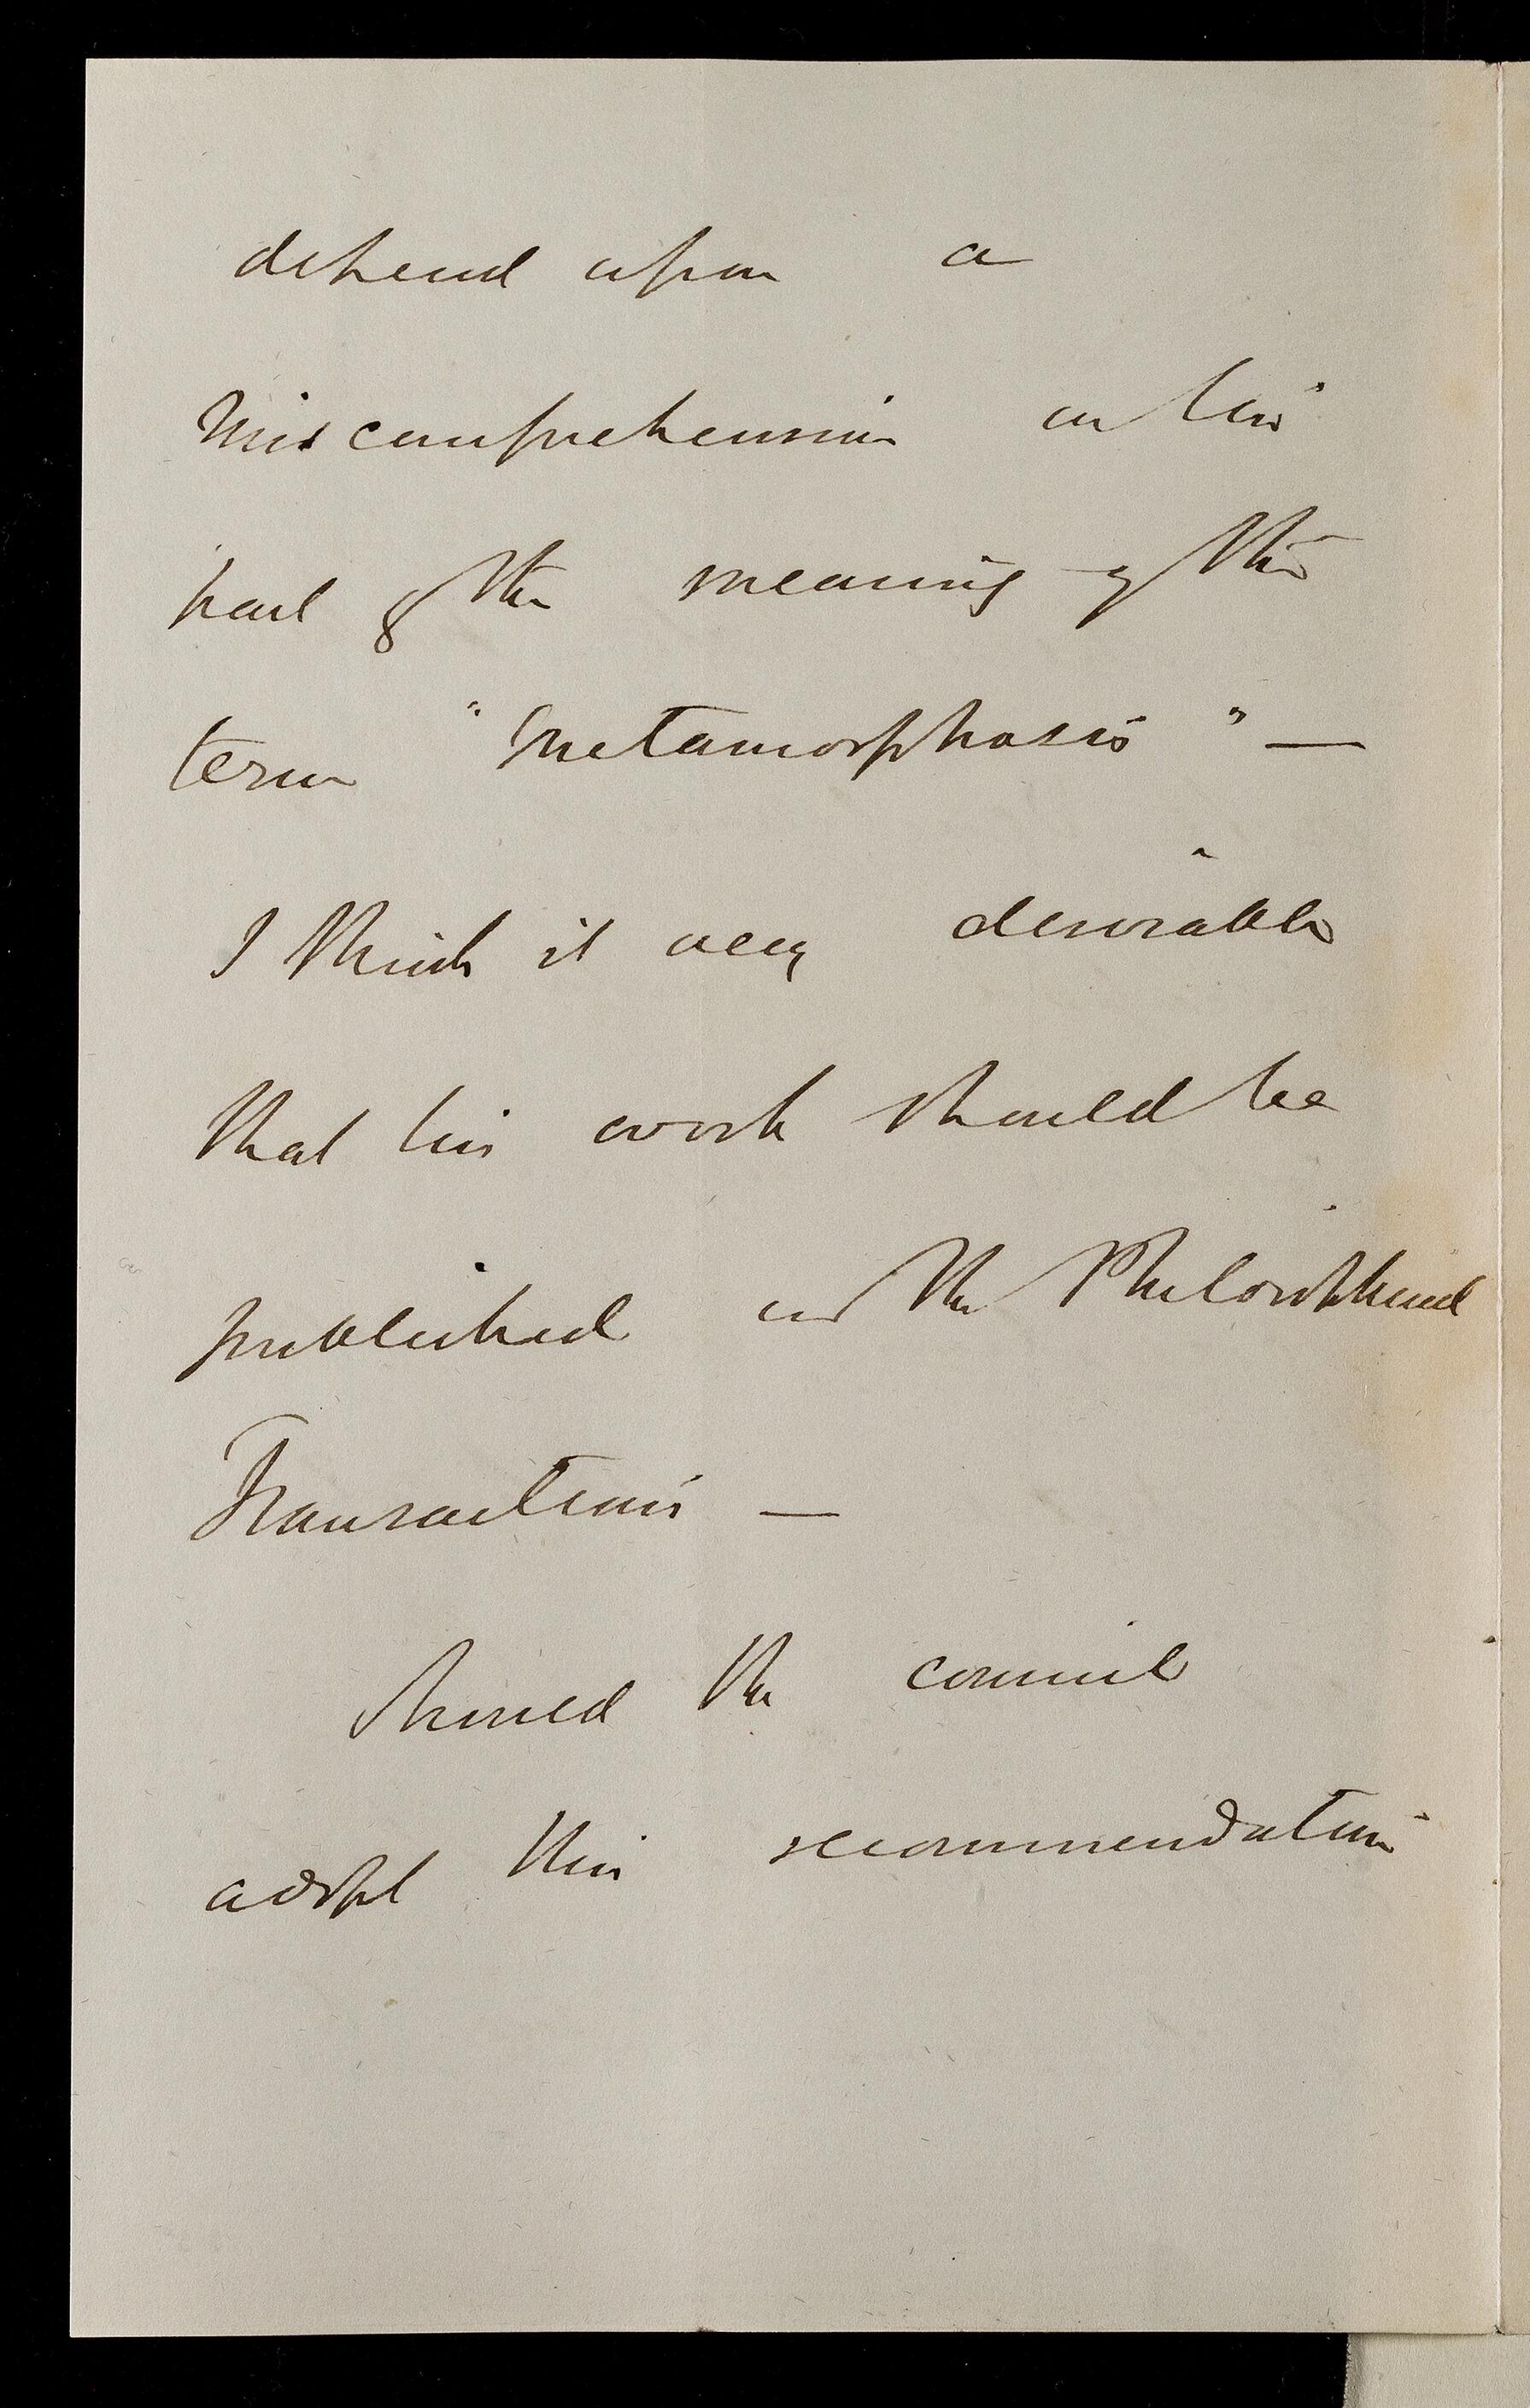 depend upon a
miscomprehension on his
part of the meaning of the
term "Metamorphosis" —
I think it very desirable
that his work should be
published in the Philosophical
Transactions —
Should the council
adopt this recommendation